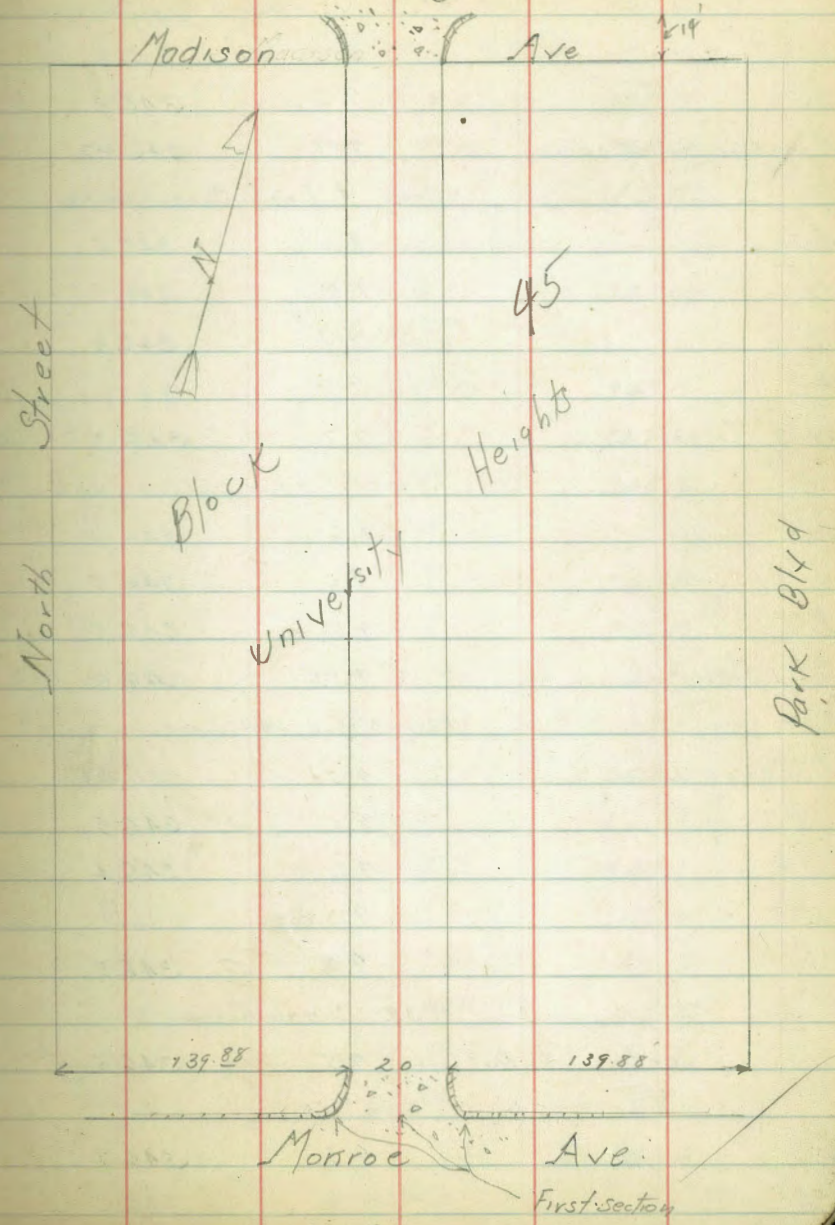 Madison Ave 14'
N
45
North Street
Block
Heights
University
Park Blvd
139.88 20 139.88'
Monroe Ave.
First section